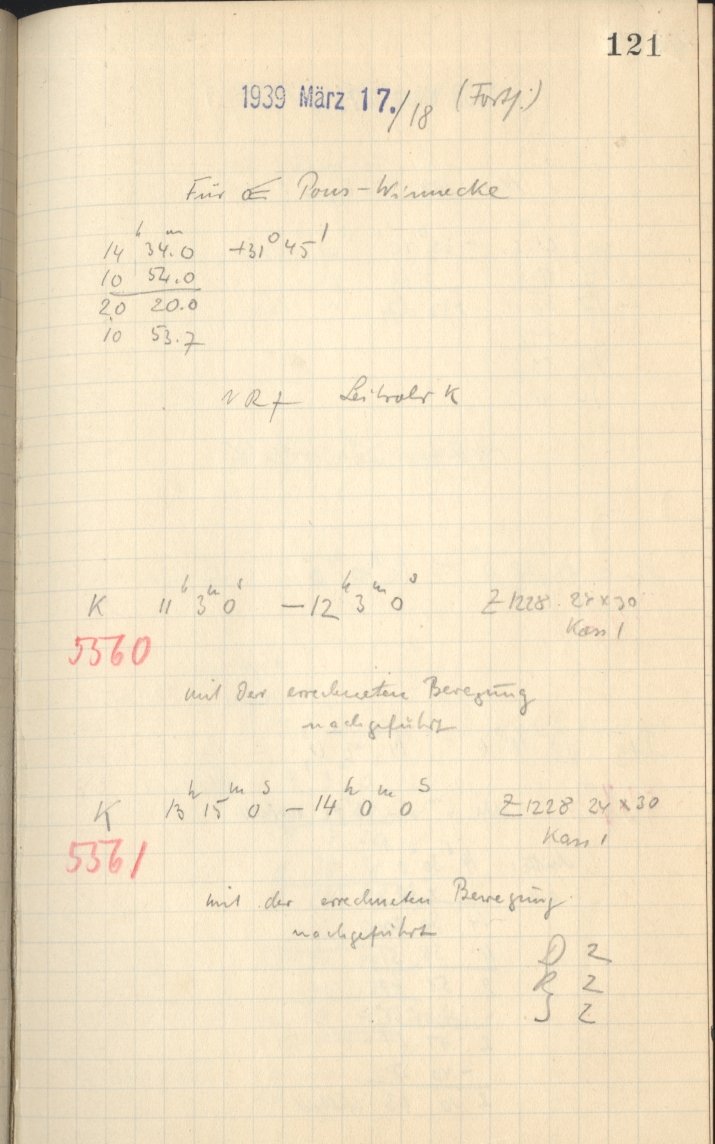 121
1939 März 17./18 (Forts.)
Für ☄ Pons-Winnecke
14ʰ 34.0ᵐ +31° 45'
10 54.0
20 20.0
10 53.7
Leitrohr K
K 11ʰ 3ᵐ 0ˢ — 12ʰ 3ᵐ 0ˢ Z 1228 24x30
Kass 1
5560
mit der errechneten Bewegung
nachgeführt
K 13ʰ 15ᵐ 0ˢ — 14ʰ 0ᵐ 0ˢ Z 1228 24x30
Kass 1
5561
mit der errechneten Bewegung
nachgeführt
D 2
R 2
S 2